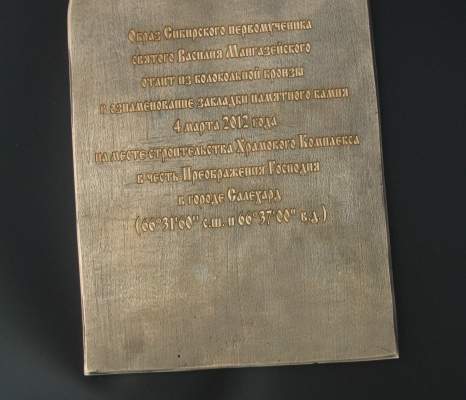 Образ Сибирского первомученика
святого Василия Мангазейского
отлит из колокольной бронзы
в ознаменование закладки памятного камня
4 марта 2012 года
на месте строительства Храмового Комплекса
в честь Преображения Господня
в городе Салехард
(66°31'60" с.ш. и 66°37'00" в.д.)